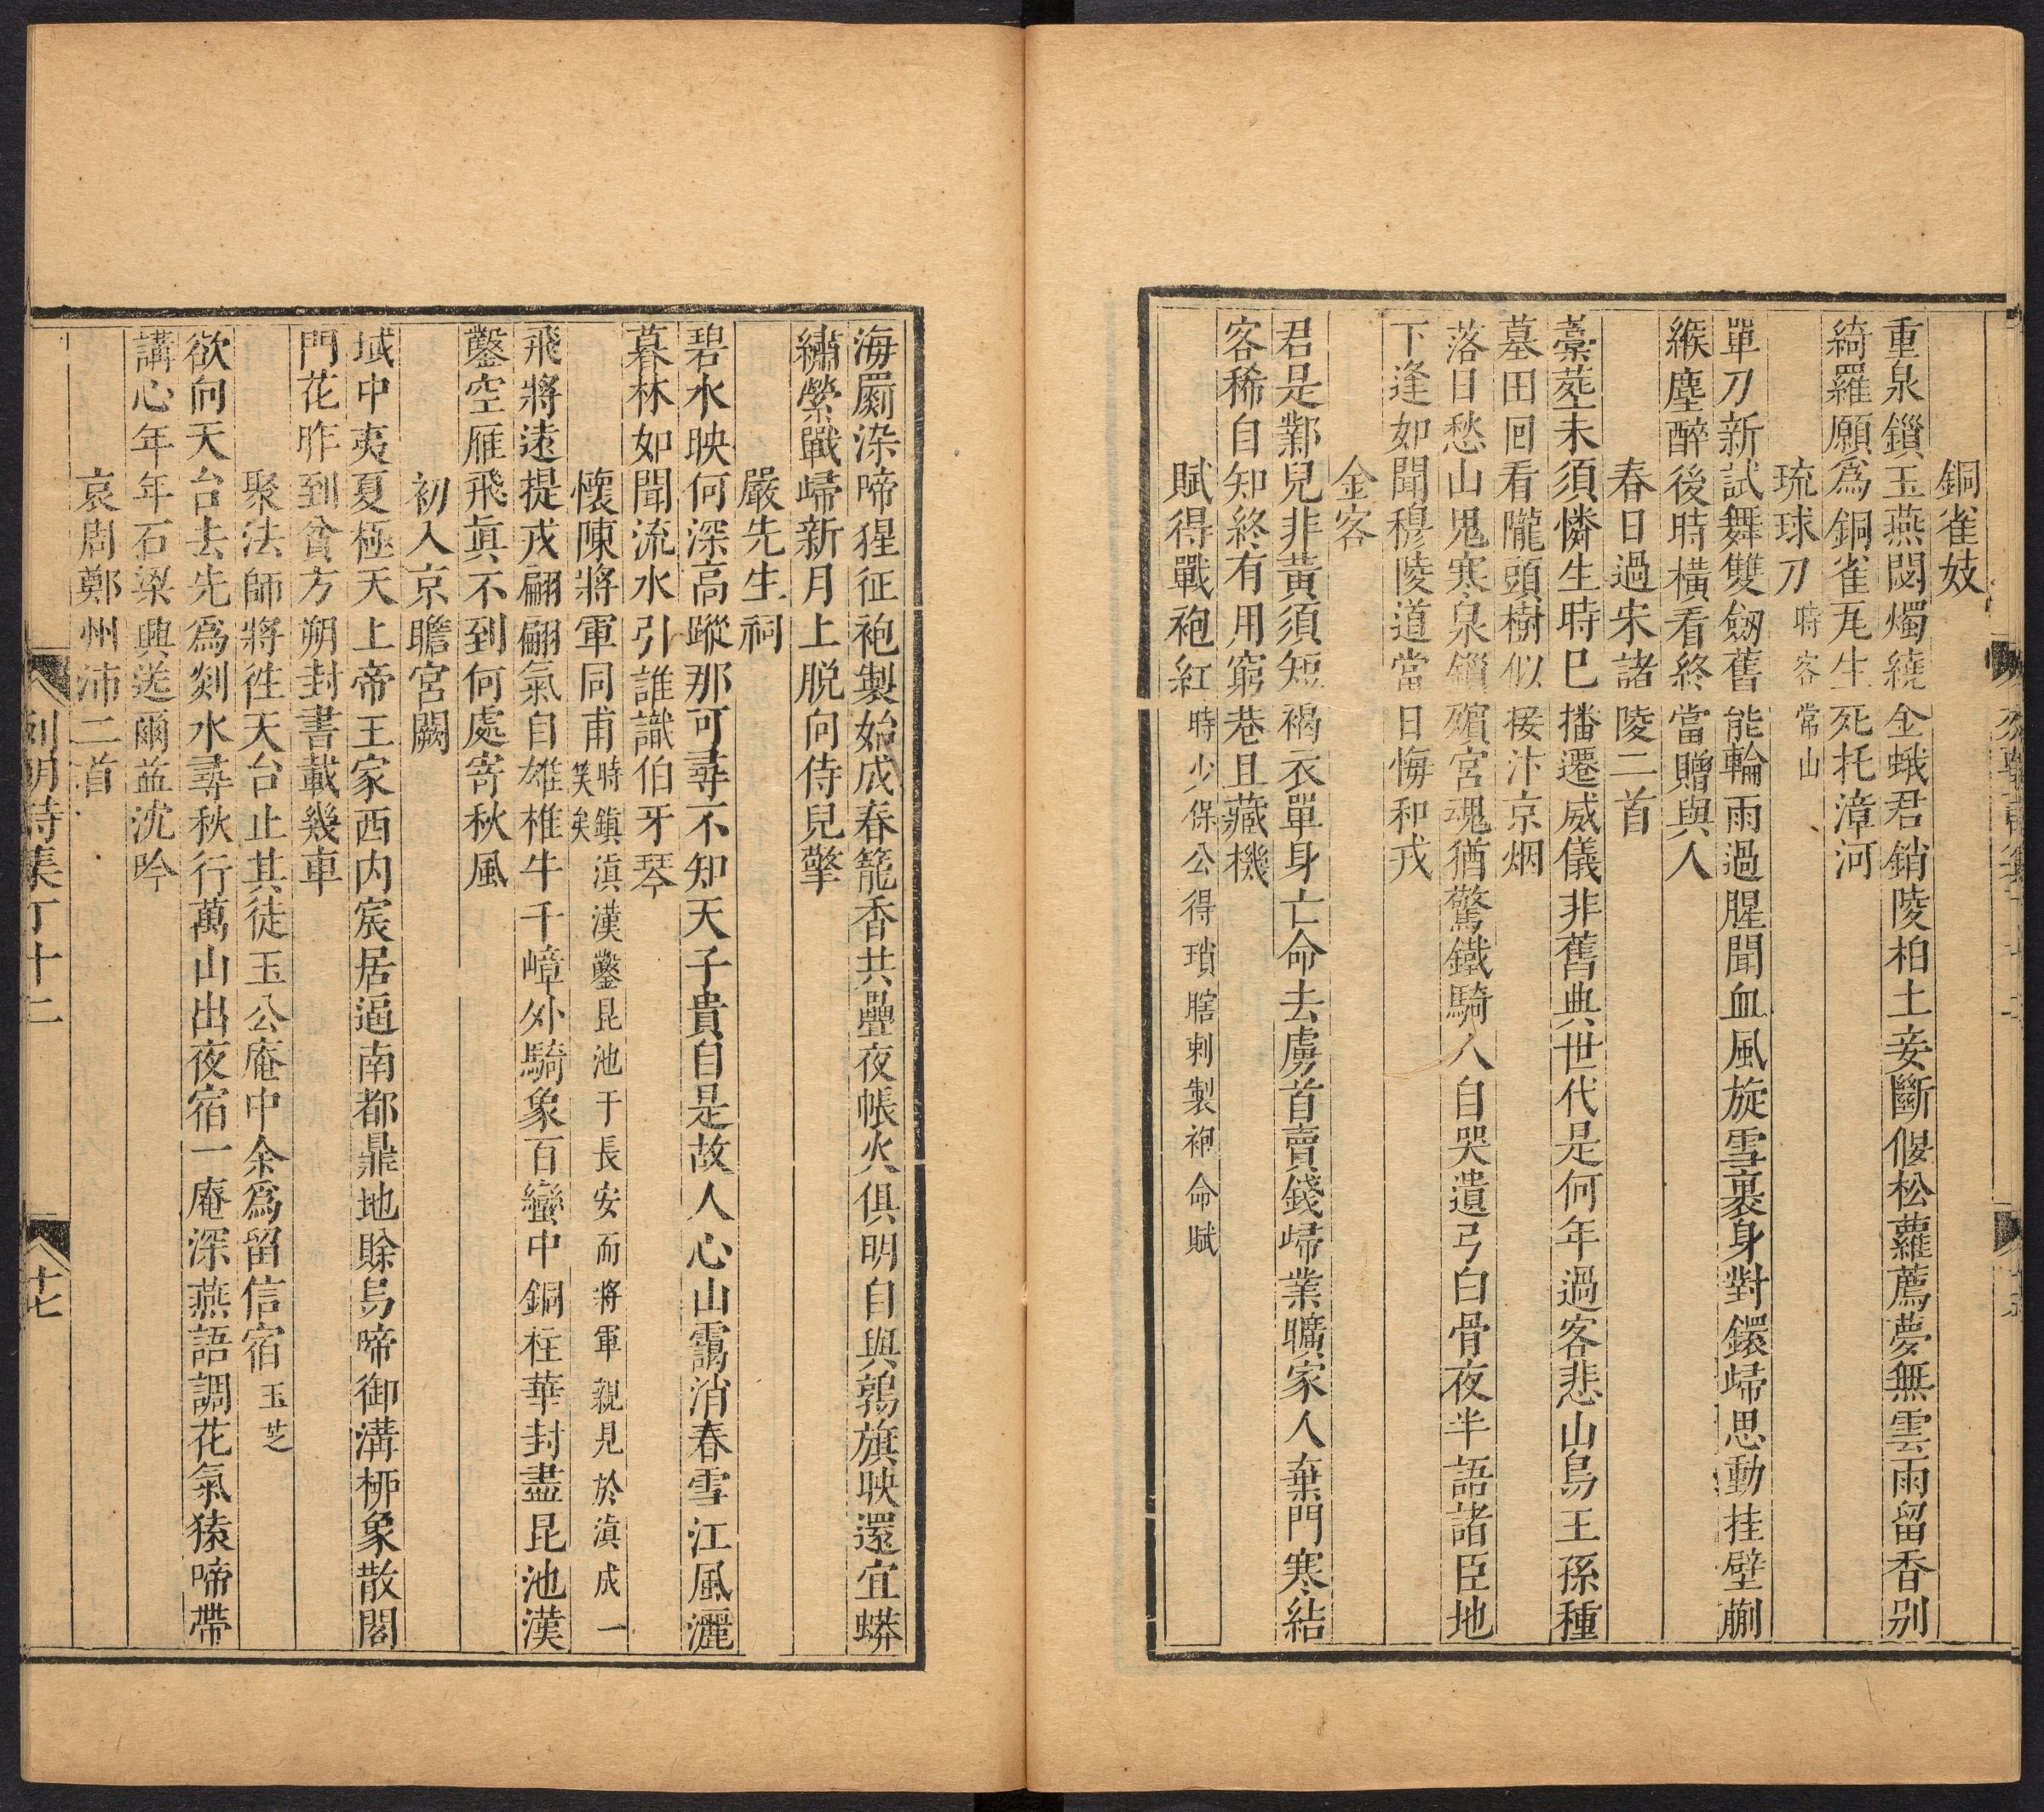 銅雀妓
重泉鎖玉燕閟燭繞金蛾君銷陵柏土妾斷偃松蘿薦夢無雲雨留香别
綺羅願爲銅雀瓦生死托漳河
琉球刀 時客常山
單刀新試舞雙劔舊能輪雨過腥聞血風旋雪裹身對鐶歸思動挂壁蒯
緱塵醉後時横看終當贈與人
春日過宋諸陵二首
藁葬未須憐生時已播遷威儀非舊典世代是何年過客悲山鳥王孫種
墓田回看隴頭樹似接汴京烟
落日愁山鬼寒泉鎖殯宮魂猶驚鐵騎人自哭遺弓白骨夜半語諸臣地
下逢如聞穆陵道當日悔和戎
金客
君是鄴兒非黄須短褐衣單身亡命去虜首賣錢歸業曠家人棄門寒結
客稀自知終有用窮巷且藏機
賦得戰袍紅 時少保公得瑣䐉剌製袍命賦
海罽染啼猩征袍製始成春籠香共疊夜帳火俱明自與鶉旗映還宜蟒
繡縈戰歸新月上脱向侍兒擎
嚴先生祠
碧水映何深高蹤那可尋不知天子貴自是故人心山靄消春雪江風灑
暮林如聞流水引誰識伯牙琴
懷陳將軍同甫 時鎮滇漢鑿昆池于長安而將軍親見於滇成一
笑矣
飛將遠提戎翩翩氣自雄椎牛千嶂外騎象百蠻中銅柱華封盡昆池漢
鑿空雁飛眞不到何處寄秋風
初入京瞻宮闕
域中夷夏極天上帝王家西内宸居逼南都鼎地賒烏啼御溝栁象散閣
門花昨到貧方朔封書載幾車
聚法師將徃天台止其徒玉公庵中余爲留信宿 玉芝
欲向天台去先爲剡水尋秋行萬山出夜宿一庵深燕語調花氣猿啼帶
講心年年石梁興送爾益沈吟
哀周鄭州沛二首
列朝詩集丁十二
十七